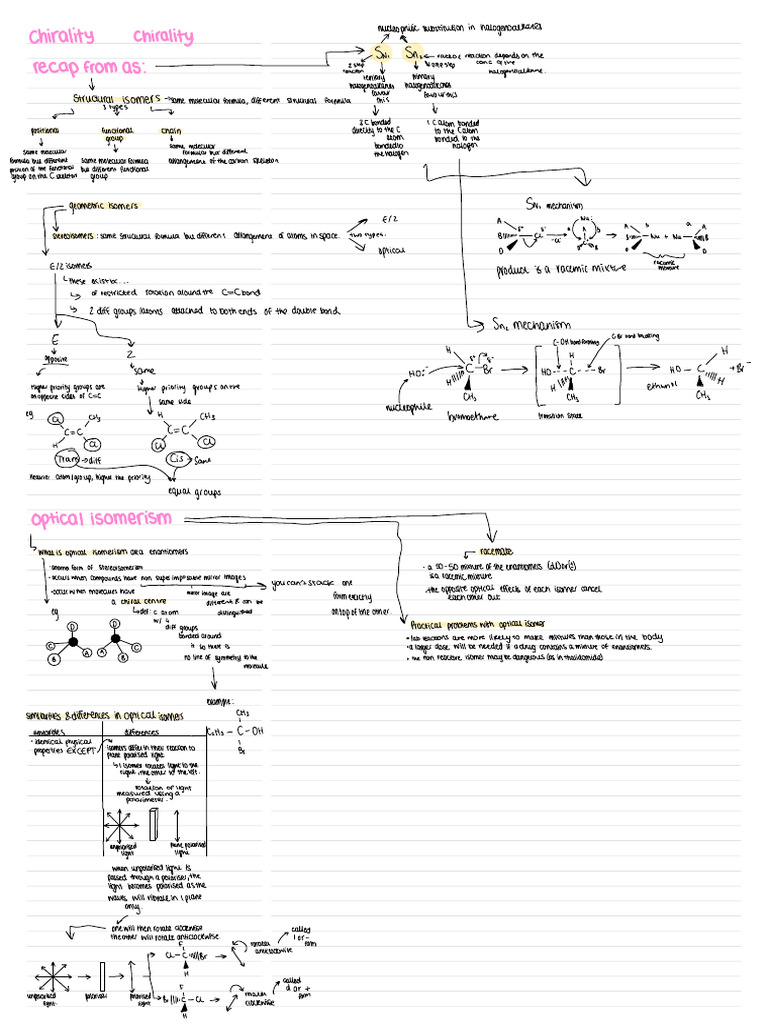 Chirality Chirality
recap from as:
Structural isomers → same molecular formula, different structural formula
3 types
positional
functional group
chain
same molecular formula but different position of the functional group on the C skeleton
same molecular formula but different functional group
same molecular formula but different arrangement of the carbon skeleton
geometric isomers
stereoisomers: same structural formula but different arrangement of atoms in space.
two types
E/Z
optical
E/Z isomers
these exist bc...
of restricted rotation around the C=C bond
2 diff groups/atoms attached to both ends of the double bond
E
opposite
higher priority groups are on opposite sides of C=C
Z
same
higher priority groups on the same side
eg
Cl CH3
C=C
H Cl
H CH3
C=C
Cl Cl
Trans → diff
Cis → same
Heavier atom/group, higher the priority
equal groups
nucleophilic substitution in halogenoalkanes
SN1
SN2
2 step reaction
tertiary halogenoalkanes favour this
3 C bonded directly to the C atom bonded to the halogen
1 step
primary halogenoalkanes favour this
1 C atom bonded to the C atom bonded to the halogen
SN1 mechanism
product is a racemic mixture
racemic mixture
SN2 mechanism
HO:⁻
nucleophile
H
C
Br
H
CH3
bromoethane
C-OH bond forming
C-Br bond breaking
HO
H
C
Br
H
CH3
transition state
HO
C
H
H
CH3
+Br⁻
ethanol
optical isomerism
What is optical isomerism aka enantiomers
occurs when compounds have non superimposable mirror images
you can't stack one from exactly on top of one other.
mirror image are different & can be distinguished
occur when molecules have a chiral centre
def: C atom w/ 4 diff groups bonded around it so there is no line of symmetry to the molecule
eg
D C B A
D A B C
example:
CH3
C2H5 – C – OH
Br
racemate
a 50-50 mixture of the enantiomers
is a racemic mixture
the opposite optical effects of each isomer cancel each other out
Practical problems with optical isomer
lab reactions are more likely to make mixtures than those in the body
a larger dose will be needed if a drug contains a mixture of enantiomers.
the non reactive isomer may be dangerous (as in thalidomide)
similarities & differences in optical isomers
similarities
differences
identical physical properties EXCEPT
isomers differ in their reaction to plane polarised light
1 isomer rotates light to the right, the other to the left.
rotation of light measured using a polarimeter.
unpolarised light
plane polarised light
when unpolarised light is passed through a polariser, the light becomes polarised as the waves will vibrate in 1 plane only.
one will then rotate clockwise
the other will rotate anticlockwise
unpolarised light
polariser
polarised light
F
Cl – C Br
H
rotates anticlockwise
called l or - form
F
Br C – Cl
H
rotates clockwise
called d or + form